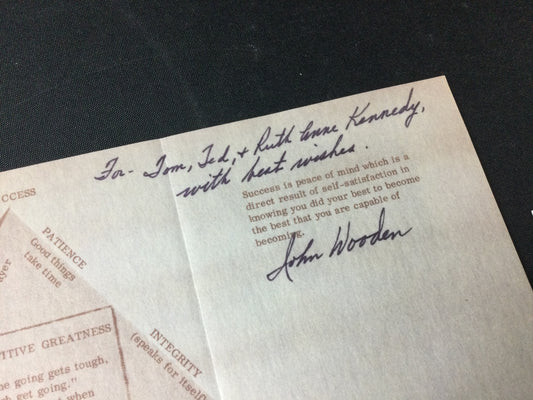 For - Tom, Ted, + Ruth Anne Kennedy,
with best wishes.
CCESS
Success is peace of mind which is a
direct result of self-satisfaction in
knowing you did your best to become
the best that you are capable of
becoming.
John Wooden
PATIENCE
Good things
take time
ayer
INTEGRITY
(speaks for itself
TITIVE GREATNESS
he going gets tough,
gh get going."
when